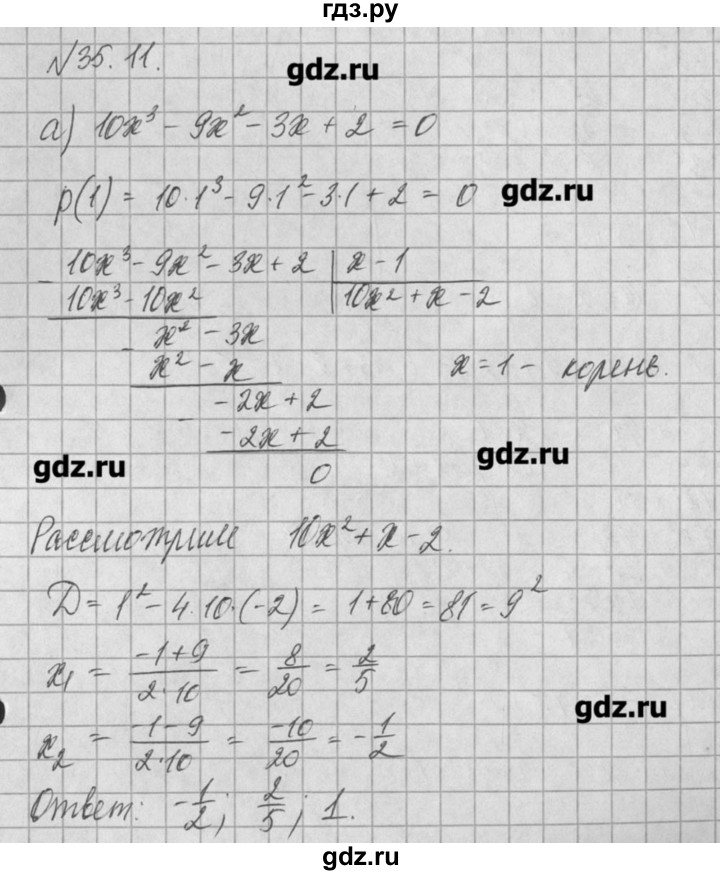 гдз.ру
№35.11.
gdz.ru
а) 10x³ - 9x² - 3x + 2 = 0
p(1) = 10·1³ - 9·1² - 3·1 + 2 = 0
gdz.ru
10x³ - 9x² - 3x + 2 | x - 1
10x³ - 10x² | 10x² + x - 2
x² - 3x
x² - x
x = 1 - корень.
-2x + 2
-2x + 2
gdz.ru
gdz.ru
0
Рассмотрим 10x² + x - 2.
D = 1² - 4·10·(-2) = 1 + 80 = 81 = 9²
x₁ = (-1+9)/(2·10) = 8/20 = 2/5
gdz.ru
x₂ = (-1-9)/(2·10) = -10/20 = -1/2
Ответ: -1/2; 2/5; 1.
gdz.ru